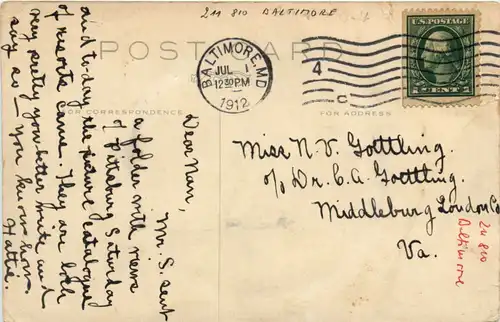 211 810 BALTIMORE
POST CARD
BALTIMORE, MD.
JUL 1
12 30 PM
1912
4
C
U.S. POSTAGE
1 CENT 1
FOR CORRESPONDENCE
FOR ADDRESS
Dear Nan,
Mr. S. sent
a folder with views
of Pittsburg Saturday
and to-day the picture catalogue
of resorts came. They are both
very pretty. You better write and
say so — you know how.
Hattie.
Miss N. V. Gottling.
c/o Dr. C. A. Gottling.
Middleburg Loudon Co
Va.
211 810
Baltimore